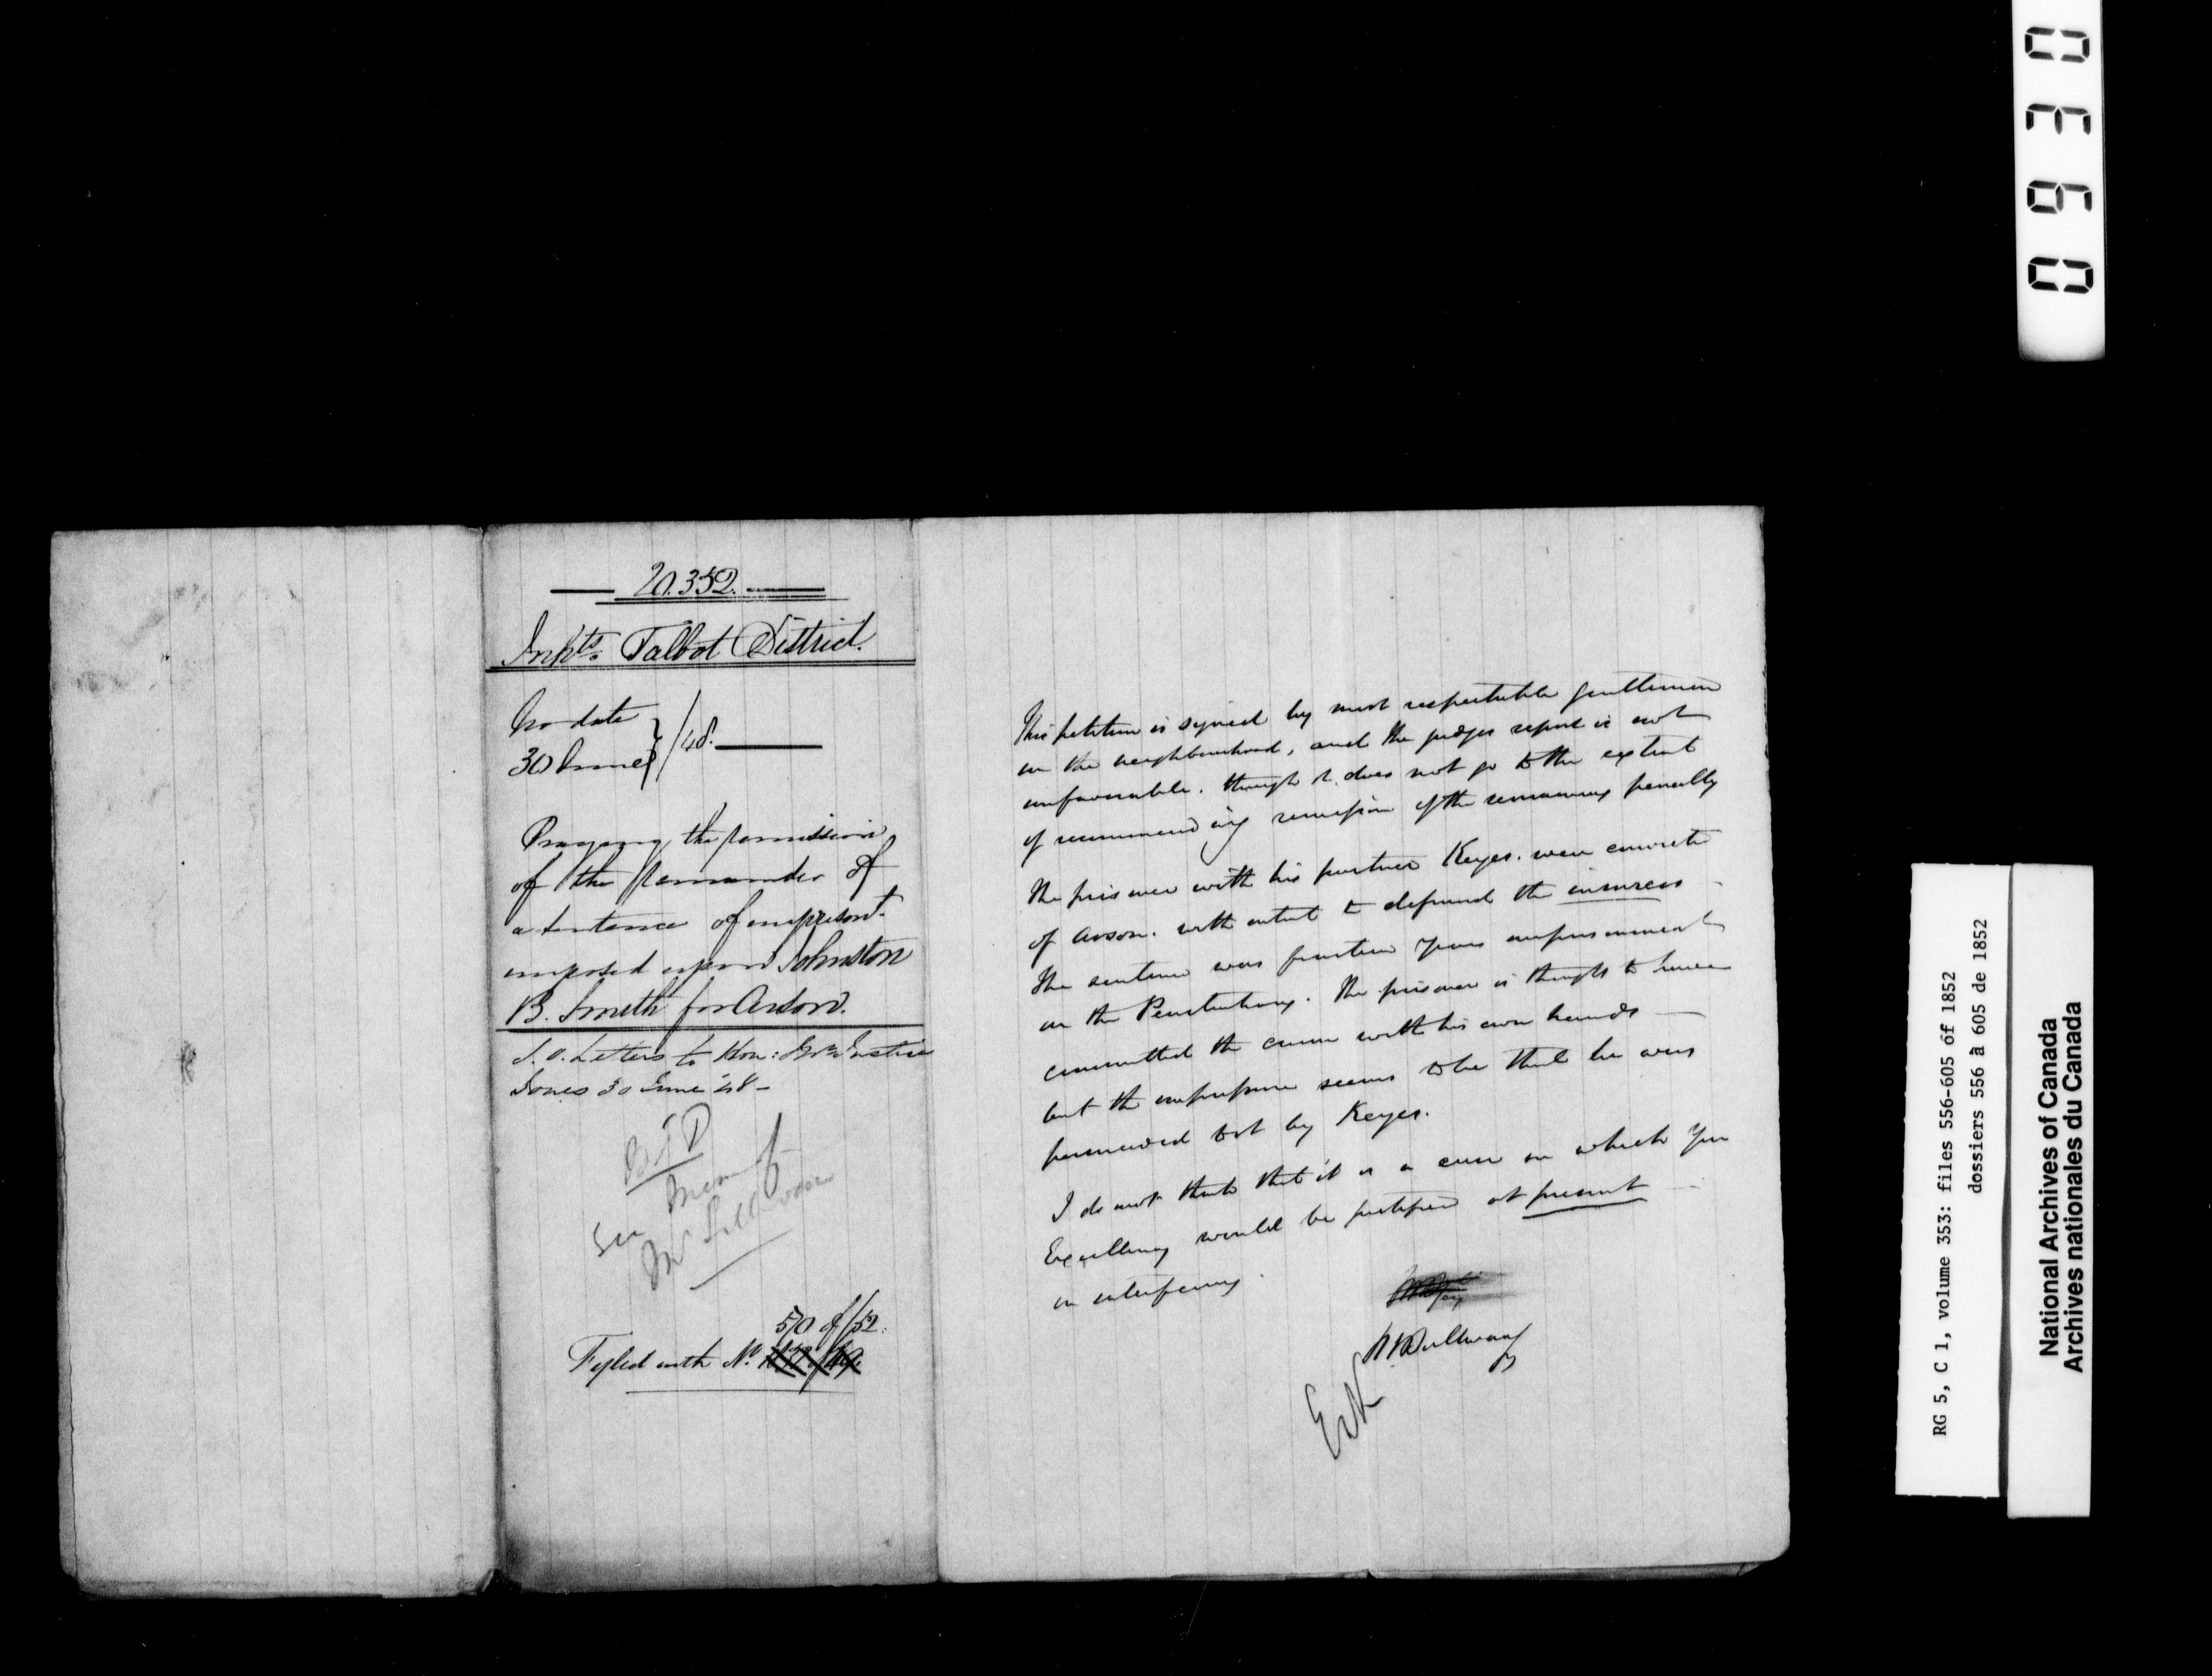 20.352.
Inhts. Talbot District.
No date
30 June } /48.
Praying the remission
of the remainder of
a sentence of imprisont.
imposed upon Johnston
B. Smith for Arson.
Letters to Hon: Mr Justice
Jones 30 June 48 -
See Memo of
Mr Sullivan
570 of/52.
Fyled with No.
This petition is signed by most respectable gentlemen
in the neighbourhood, and the judges report is not
unfavourable. though it does not go to the extent
of recommending remission of the remaining penalty
The prisoner with his partner Keyes. were convicted
of Arson. with intent to defraud the insurers
The sentence was fourteen years imprisonment
in the Penitentiary. The prisoner is thought to have
committed the crime with his own hands
but the impression seems to be that he was
persuaded to it by Keyes.
I do not think that it is a case in which Your
Excellency would be justified at present
in interfering.
R B Sullivan
E & K
0930
RG 5, C 1, volume 353: files 556-605 of 1852
dossiers 556 à 605 de 1852
National Archives of Canada
Archives nationales du Canada